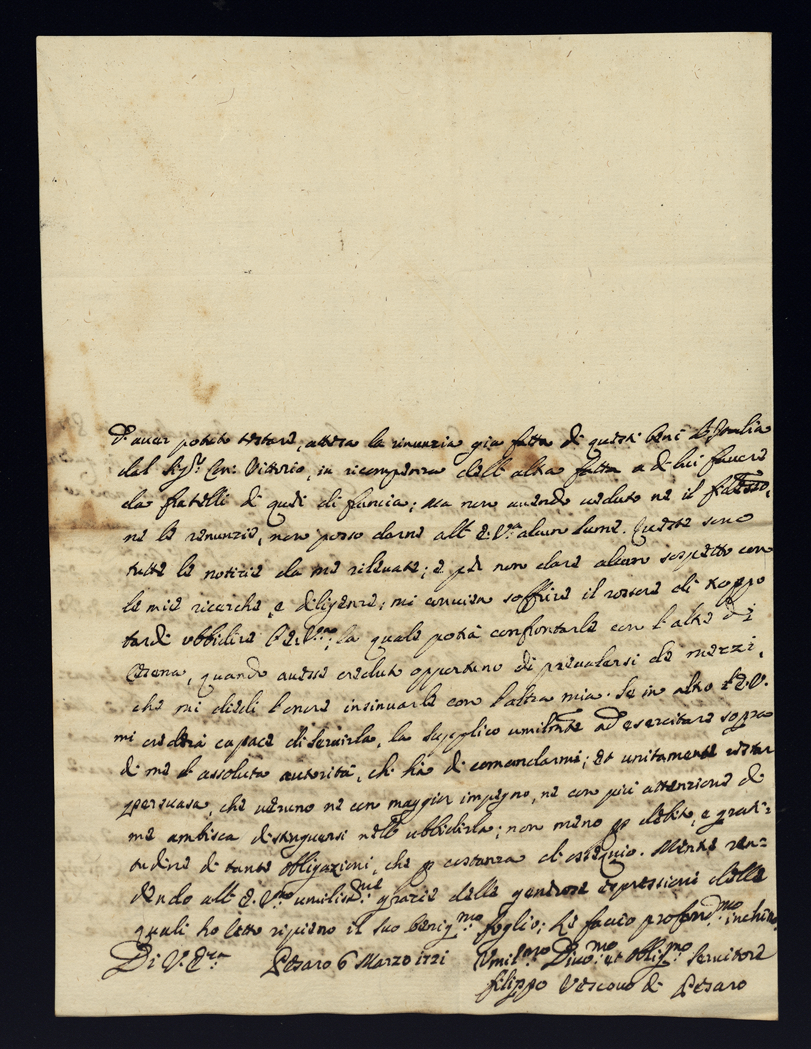 d'aver potuto testare, attesa la rinunzia gia fatta di questi beni d'Italia
dal Sig.r Con: Vittorio, in ricompenza dell'altra fatta a di lui favore
da fratelli di quei di francia; Ma non avendo veduto ne il
ne le renunzie, non posso darne all'E. V.ra alcun lume. Queste sono
tutte le notizie da me rilevate; e p non dare alcun sospetto con
le mie ricerche, e diligenze; mi convien soffrire il rossore di troppo
tardi ubbidire l'E. V.ra, la quale potrà confrontarle con l'altre di
Cesena, quando avesse creduto opportuno di prevalersi de mezzi,
che mi diedi l'onore insinuarle con l'altra mia. Se in altro l'E. V.
mi crederà capace di servirla, la supplico umilmte ad esercitare sopra
di me l'assoluta autorità, che hà di comandarmi; et unitamente restar
persuasa, che veruno ne con maggior impegno, ne con più attenzione di
me ambisca distinguersi nell'ubbidirla; non meno p debito, e grati:
tudine di tante obligazioni, che p costanza di ossequio. Mentre ren:
dendo all'E. V.ra umilissime grazie delle generose espressioni delle
quali ho letto ripieno il suo benig.mo foglio; Le faccio profond.mo inchino
Di V. E.za Pesaro 6 Marzo 1721 Umil.mo Divo.mo et Oblig.mo Servitore
filippo Vescovo di Pesaro